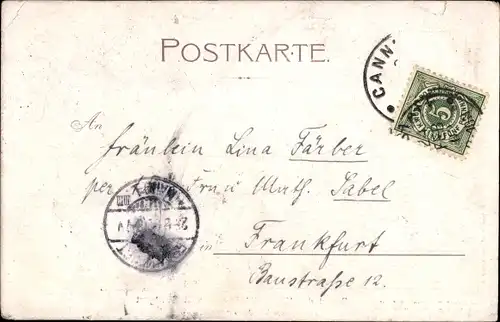 POSTKARTE.
CANN
5
An
Fräulein Lina Färber
per Frau Math. Sabel
in Frankfurt
Baustraße 12.